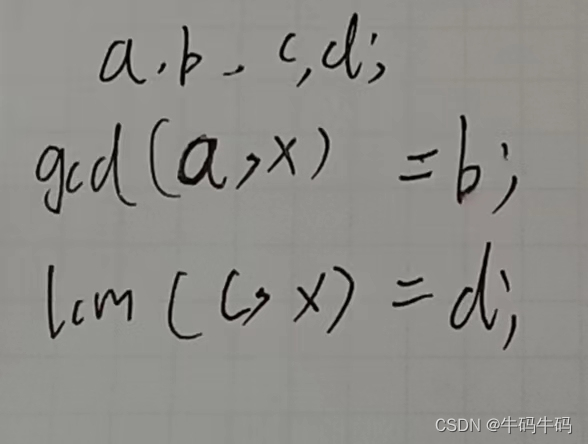 a, b, c, d;
gcd(a, x) = b;
lcm(c, x) = d;
CSDN @牛码牛码